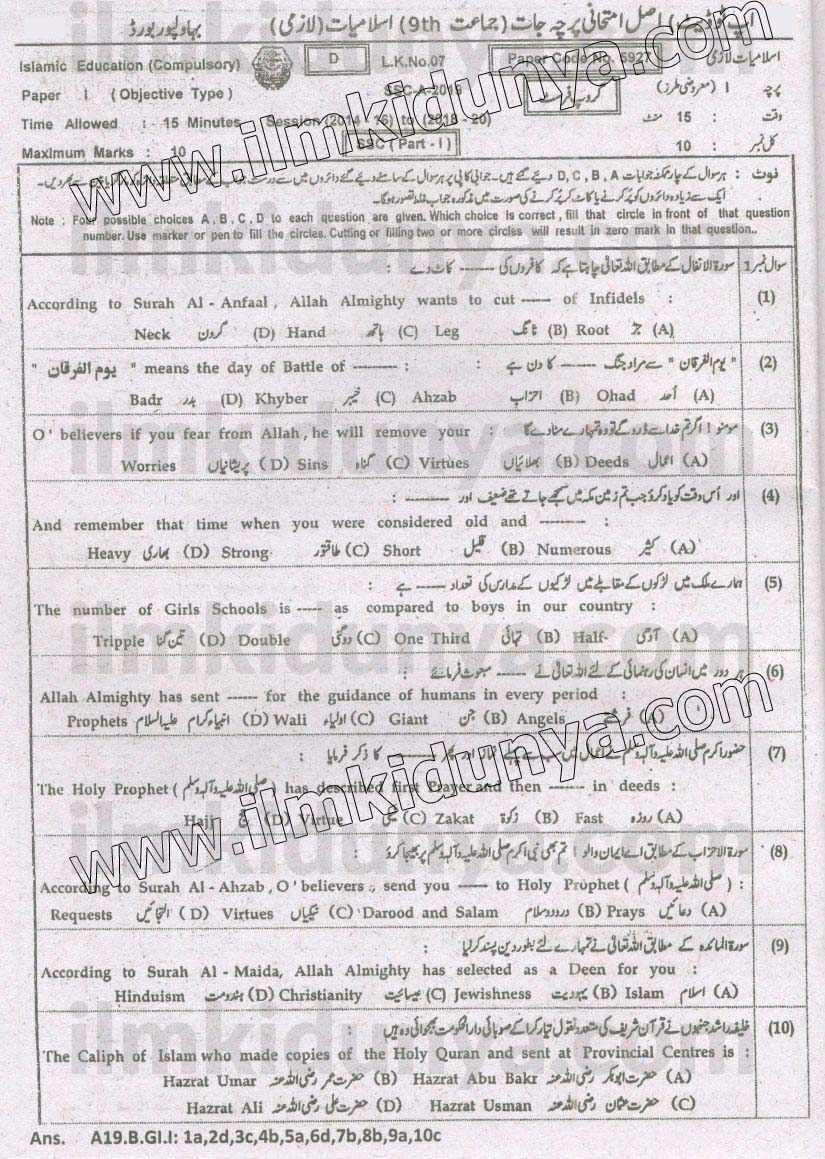 اپ ٹو ڈیٹ) اصل امتحانی پرچہ جات (جماعت 9th) اسلامیات (لازمی) بہاولپور بورڈ
Islamic Education (Compulsory) D L.K.No.07 Paper Code No. 5927 اسلامیات لازمی
Paper I (Objective Type) SSC-A-2019 گروپ فرسٹ پرچہ I (معروضی طرز)
Time Allowed : 15 Minutes Session (2014 - 16) to (2018 - 20) وقت : 15 منٹ
Maximum Marks : 10 SSC (Part - I) کل نمبر : 10
نوٹ : ہر سوال کے چار ممکنہ جوابات D, C, B, A دیئے گئے ہیں۔ جوابی کاپی پر ہر سوال کے سامنے دیئے گئے دائروں میں سے درست جواب کے مطابق
ایک سے زیادہ دائروں کو پُر کرنے یا کاٹ کر پُر کرنے کی صورت میں مذکورہ جواب غلط تصور ہوگا۔
Note : Four possible choices A, B, C, D to each question are given. Which choice is correct, fill that circle in front of that question
number. Use marker or pen to fill the circles. Cutting or filling two or more circles will result in zero mark in that question..
سوال نمبر 1 سورۃ الانفال کے مطابق اللہ تعالیٰ چاہتا ہے کہ کافروں کی ------ کاٹ دے :
According to Surah Al - Anfaal, Allah Almighty wants to cut ------ of Infidels : (1)
Neck گردن (D) Hand ہاتھ (C) Leg ٹانگ (B) Root جڑ (A)
(2) " یوم الفرقان " سے مراد جنگ ------ کا دن ہے :
" یوم الفرقان " means the day of Battle of --------- :
Badr بدر (D) Khyber خیبر (C) Ahzab احزاب (B) Ohad اُحد (A)
(3) مومنو ! اگر تم خدا سے ڈرو گے تو وہ تمہارے مٹا دے گا :
O' believers if you fear from Allah, he will remove your
Worries پریشانیاں (D) Sins گناہ (C) Virtues بھلائیاں (B) Deeds اعمال (A)
(4) اور اُس وقت کو یاد کرو جب تم زمین مکہ میں سمجھے جاتے تھے ضعیف اور -------- :
And remember that time when you were considered old and -------- :
Heavy بھاری (D) Strong طاقتور (C) Short قلیل (B) Numerous کثیر (A)
(5) ہمارے ملک میں لڑکوں کے مقابلے میں لڑکیوں کے مدارس کی تعداد ------ ہے :
The number of Girls Schools is ----- as compared to boys in our country :
Tripple تین گنا (D) Double دوگنی (C) One Third تہائی (B) Half- آدھی (A)
(6) ہر دور میں انسان کی رہنمائی کے لئے اللہ تعالیٰ نے ------ مبعوث فرمائے
Allah Almighty has sent ------ for the guidance of humans in every period :
Prophets انبیاء کرام علیہ السلام (D) Wali اولیاء (C) Giant جن (B) Angels فرشتے (A)
(7) حضور اکرم صلی اللہ علیہ وآلہ وسلم نے اعمال میں سب سے پہلے نماز اور پھر ------ کا ذکر فرمایا :
The Holy Prophet (صلی اللہ علیہ وآلہ وسلم) has described first Prayer and then ------- in deeds :
Hajj حج (D) Virtue نیکی (C) Zakat زکوٰۃ (B) Fast روزہ (A)
(8) سورۃ الاحزاب کے مطابق اے ایمان والو ! تم بھی نبی اکرم صلی اللہ علیہ وآلہ وسلم پر بھیجا کرو
According to Surah Al - Ahzab, O' believers, send you ----- to Holy Prophet (صلی اللہ علیہ وآلہ وسلم) :
Requests التجائیں (D) Virtues نیکیاں (C) Darood and Salam درود وسلام (B) Prays دعائیں (A)
(9) سورۃ المائدہ کے مطابق اللہ تعالیٰ نے تمہارے لئے بطور دین پسند کر لیا :
According to Surah Al - Maida, Allah Almighty has selected as a Deen for you :
Hinduism ہندومت (D) Christianity عیسائیت (C) Jewishness یہودیت (B) Islam اسلام (A)
(10) خلیفہ راشد جنہوں نے قرآن شریف کی متعدد نقول تیار کرا کے صوبائی دارالحکومت بھجوائی وہ ہیں
The Caliph of Islam who made copies of the Holy Quran and sent at Provincial Centres is :
Hazrat Umar حضرت عمر رضی اللہ عنہ (B) Hazrat Abu Bakr حضرت ابوبکر رضی اللہ عنہ (A)
Hazrat Ali حضرت علی رضی اللہ عنہ (D) Hazrat Usman حضرت عثمان رضی اللہ عنہ (C)
Ans. A19.B.GI.I: 1a,2d,3c,4b,5a,6d,7b,8b,9a,10c
www.ilmkidunya.com
www.ilmkidunya.com